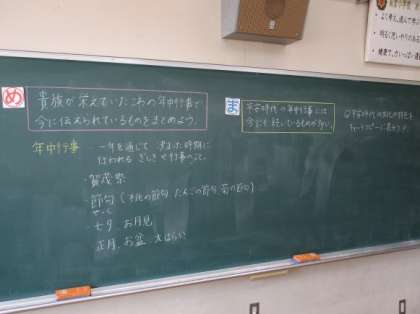 め
貴族が栄えていたころの年中行事で
今に伝えられているものをまとめよう。
年中行事 - 一年を通じて 決まった時期に
行われる ぎしきや行事のこと。
・賀茂祭
・節句（桃の節句 たんごの節句 菊の節句）
・七夕 お月見
・正月 お盆 大はらい
ま
平安時代の年中行事には
今にも続いているものが多い。
平安時代の文化の特色を
キャッチコピーに表そう